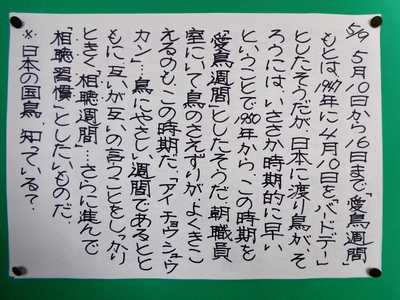 5/9
5月10日から16日まで「愛鳥週間」
もとは、1947年に4月10日をバードデー
としたそうだが、日本に渡り鳥がそ
ろうには、いささか時期的に早い
ということで1950年から、この時期を
「愛鳥週間」としたそうだ。朝、職員
室にいて鳥のさえずりがよくきこ
えるのも、この時期だ。「アイチョウシュウ
カン」…鳥にやさしい週間であるとと
もに互いが互いの言うことをしっかり
ときく「相聴週間」…さらに進んで
「相聴習慣」としたいものだ。
※日本の国鳥、知っている？